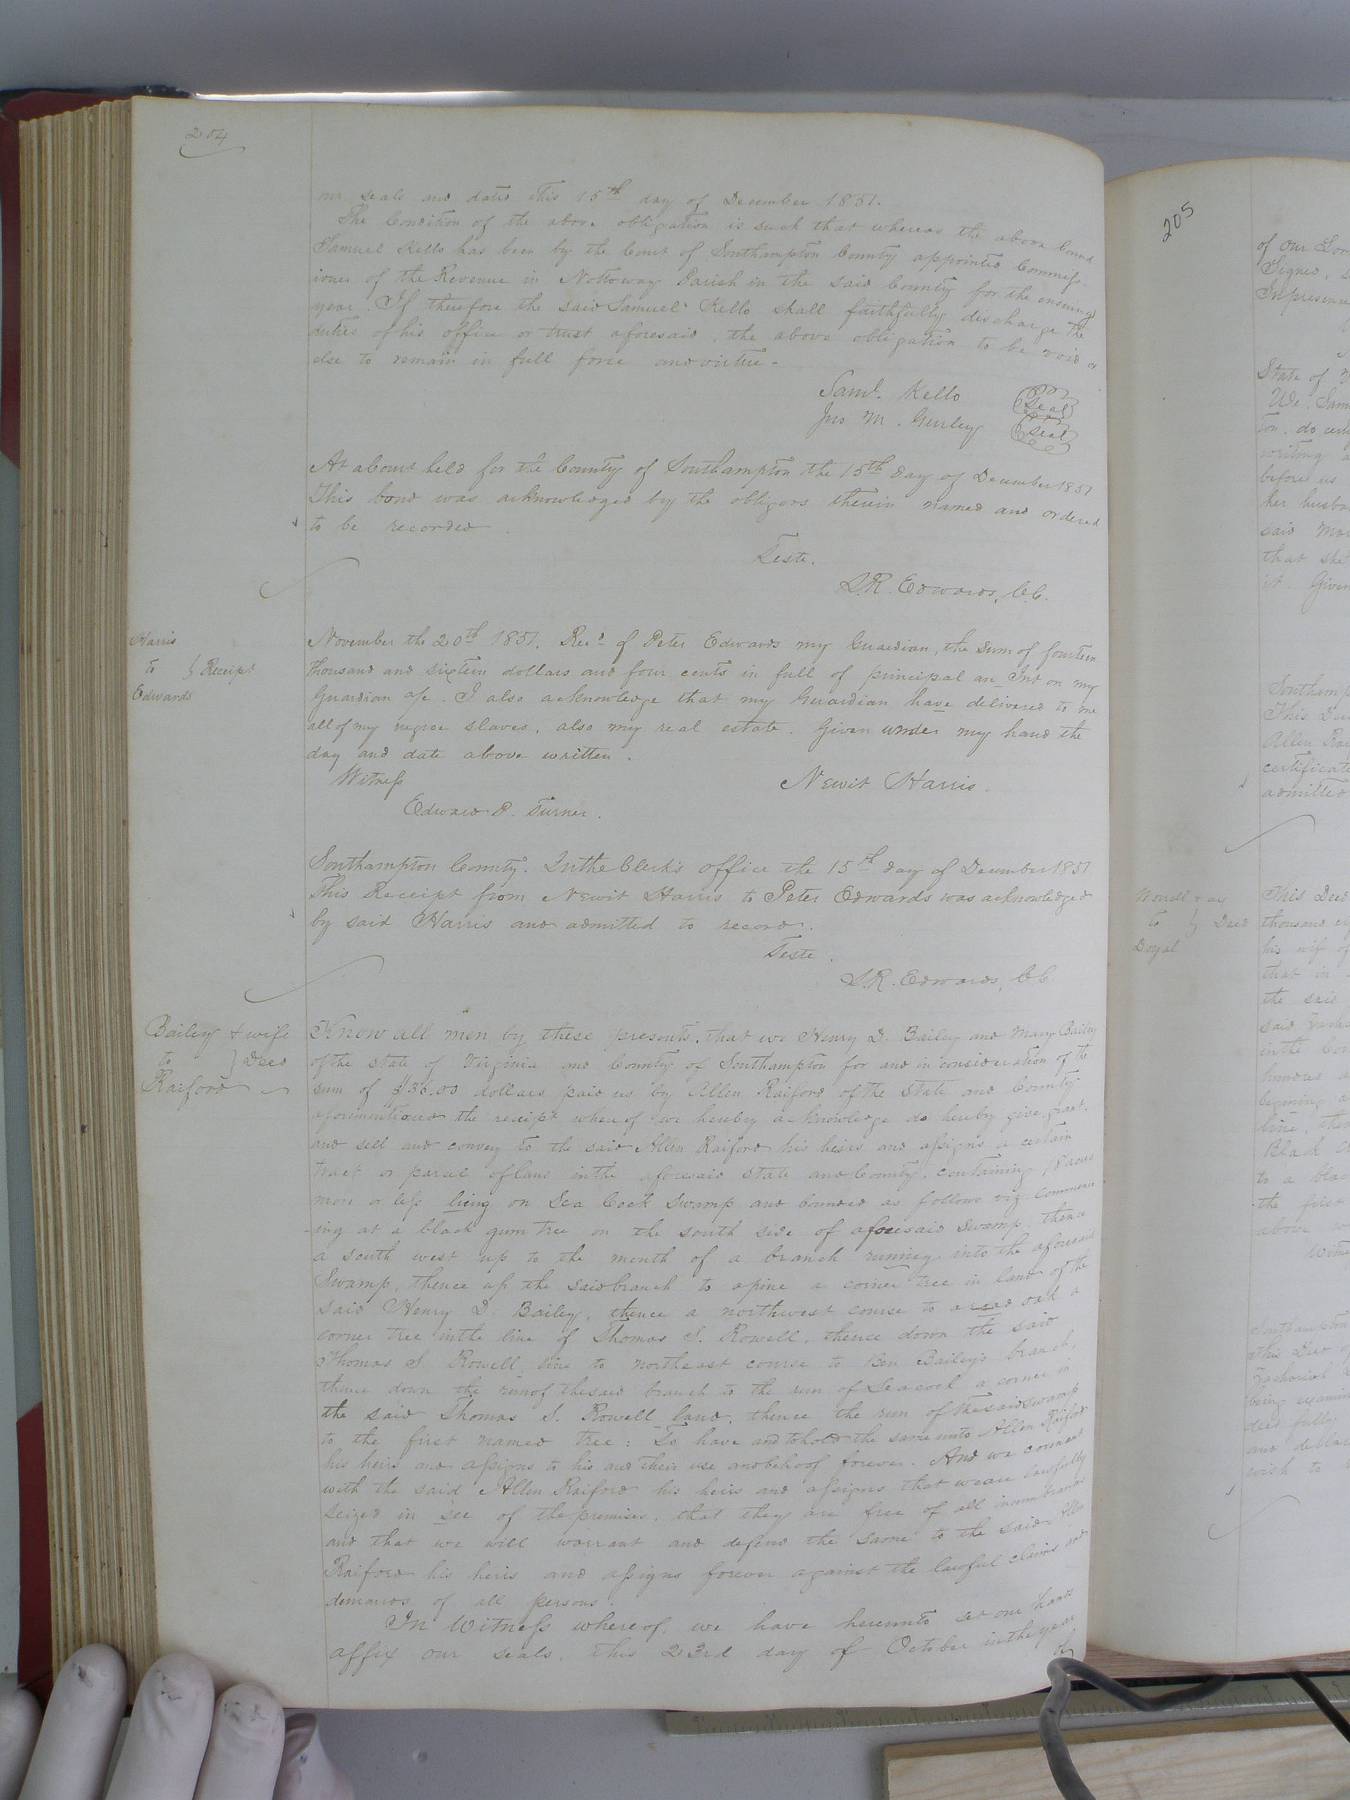 204
our seals and dated this 15th day of December 1851.
The Condition of the above obligation is such that whereas the above bound
Samuel Kello has been by the Court of Southampton County appointed Commiss-
ioner of the Revenue in Nottoway Parish in the said County for the ensuing
year. If therefore the said Samuel Kello shall faithfully discharge the
duties of his office or trust aforesaid, the above obligation to be void or
else to remain in full force and virtue -
Saml. Kello (Seal)
Jno M. Gurley (Seal)
At a Court held for the County of Southampton the 15th day of December 1851
This bond was acknowledged by the obligors therein named and ordered
to be recorded.
Teste.
L.R. Edwards, C.C.
Harris
to } Receipt
Edwards
November the 20th 1851. Recd. of Peter Edwards my Guardian, the sum of fourteen
thousand and sixteen dollars and four cents in full of principal an Int on my
Guardian a/c. I also acknowledge that my Guardian have delivered to me
all of my negroe slaves, also my real estate. Given under my hand the
day and date above written.
Witness
Newit Harris.
Edward P. Turner.
Southampton County. In the Clerk's office the 15th day of December 1851
This Receipt from Newit Harris to Peter Edwards was acknowledged
by said Harris and admitted to record.
Teste.
L.R. Edwards, C.C.
Bailey & wife
to } Deed
Raiford
Know all men by these presents, that we Henry D. Bailey and Mary Bailey
of the state of Virginia and County of Southampton for and in consideration of the
sum of $36.00 dollars paid us by Allen Raiford of the State and County
aforementioned the receipt whereof we hereby acknowledge do hereby give, grant,
and sell and convey to the said Allen Raiford his heirs and assigns a certain
tract or parcel of land in the aforesaid State and County, containing 18 acres
more or less lieing on Sea Cock Swamp and bounded as follows viz commenc
-ing at a black gum tree on the south side of aforesaid Swamp, thence
a south west up to the mouth of a branch running into the aforesaid
Swamp, thence up the said branch to a pine a corner tree in land of the
said Henry D. Bailey, thence a northwest course to a read oak a
corner tree in the line of Thomas J. Rowell, thence down the said
Thomas J. Rowell line to northeast course to Ben Bailey's branch,
thence down the run of the said branch to the run of Seacock a corner in
the said Thomas J. Rowell land, thence the run of the said swamp
to the first named tree: To have and to hold the same unto Allen Raiford
his heirs and assigns to his and their use and behoof forever. And we covenant
with the said Allen Raiford his heirs and assigns that we are lawfully
seized in see of the premises, that they are free of all incumbrances
and that we will warrant and defend the same to the said Allen
Raiford his heirs and assigns forever against the lawful claims and
demands of all persons.
In Witness whereof, we have hereunto set our hands
affix our seals, this 23rd day of October in the year
of
205
of our Lor
Signed, s
In presence
State of
We, Sam
ton, do cert
writing
before us
her husba
said Mar
that she
it. Given
Southamp
This Dee
Allen Rai
certificate
admitted
Worrell & ux
to } Deed
Doyal
This Deed
thousand ei
his wife of
that in
the said
said Zacha
in the Cou
hundred a
begining a
line, then
Black
to a blac
the first
above w
Witne
Southampton
This Deed of
Zachariah
being examin
deed fully
and declar
wish to